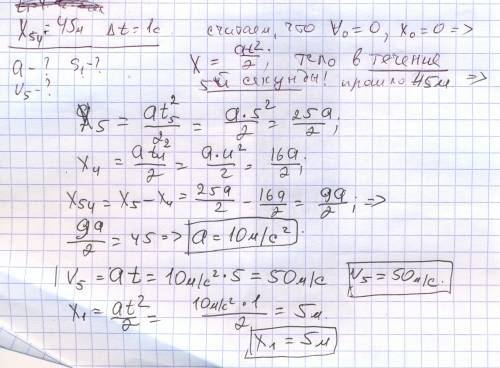 X₅₄ = 45м Δt = 1с
a - ? S₁ - ?
v₅ - ?
считаем, что V₀ = 0, x₀ = 0 =>
X = at²/2, тело в течение
5й секунды! прошло 45м =>
X₅ = at₅²/2 = a·5²/2 = 25a/2;
X₄ = at₄²/2 = a·4²/2 = 16a/2;
X₅₄ = X₅ - X₄ = 25a/2 - 16a/2 = 9a/2; =>
9a/2 = 45 => a = 10м/с².
V₅ = at = 10м/с²·5 = 50м/с V₅ = 50м/с.
X₁ = at²/2 = 10м/с²·1/2 = 5м.
X₁ = 5м